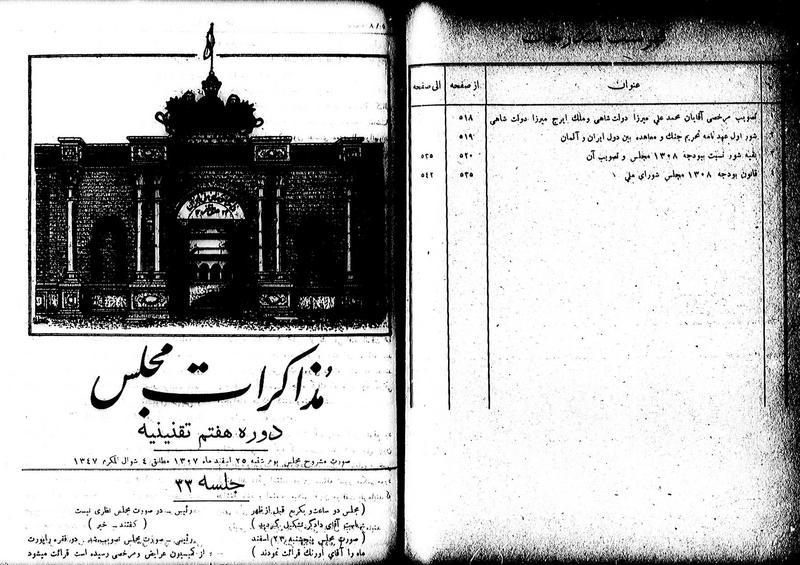 فهرست مندرجات
عنوان
از صفحه
الی صفحه
تصویب مرخصی آقایان محمد علی میرزا دولت شاهی و ملك ایرج میرزا دولت شاهی ۵۱۸
شور اول عهد نامه تحریم جنك و معاهده بین دول ایران و آلمان ۵۱۹
بقیه شور نسبت ببودجه ۱۳۰۸ مجلس و تصویب آن ۵۲۰ ۵۳۵
قانون بودجه ۱۳۰۸ مجلس شورای ملی ۵۳۵ ۵۴۲
مذاکرات مجلس
دوره هفتم تقنینیه
صورت مشروح مجلس یوم شنبه ۲۵ اسفند ماه ۱۳۰۷ مطابق ٤ شوال المکرم ۱۳٤۷
جلسه ۳۳
( مجلس دو ساعت و یکربع قبل از ظهر
بریاست آقای دادگر تشکیل گردید )
( صورت مجلس پنجشنبه ۲۳ اسفند
ماه را آقای اورنك قرائت نمودند )
رئیس ـ در صورت مجلس نظری نیست
( گفتند ـ خیر )
رئیس ـ صورت مجلس تصویب شد . دو فقره راپورت
از کمیسیون عرایض و مرخصی رسیده است قرائت میشود